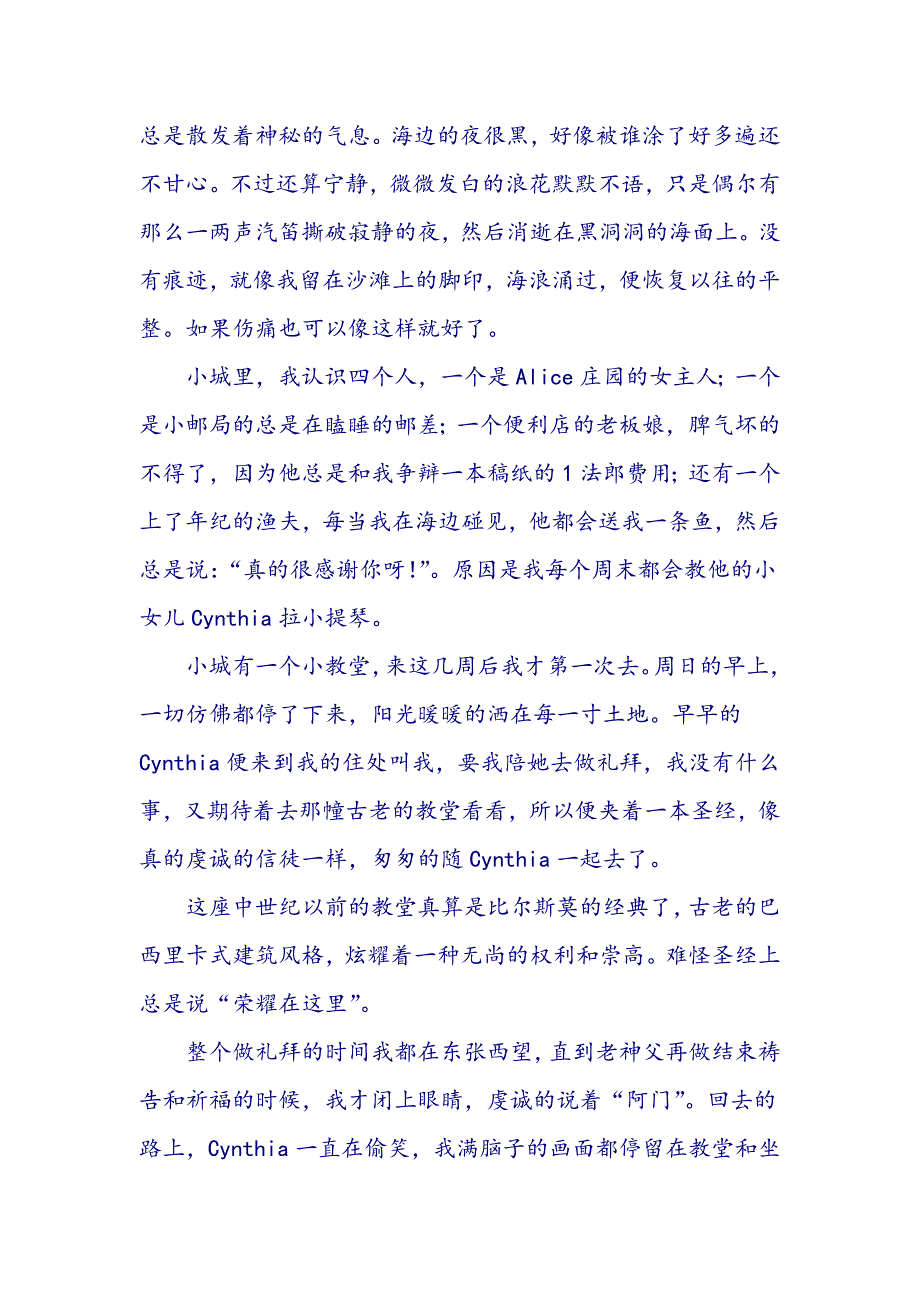 总是散发着神秘的气息。海边的夜很黑，好像被谁涂了好多遍还
不甘心。不过还算宁静，微微发白的浪花默默不语，只是偶尔有
那么一两声汽笛撕破寂静的夜，然后消逝在黑洞洞的海面上。没
有痕迹，就像我留在沙滩上的脚印，海浪涌过，便恢复以往的平
整。如果伤痛也可以像这样就好了。
小城里，我认识四个人，一个是Alice庄园的女主人；一个
是小邮局的总是在瞌睡的邮差；一个便利店的老板娘，脾气坏的
不得了，因为他总是和我争辩一本稿纸的1法郎费用；还有一个
上了年纪的渔夫，每当我在海边碰见，他都会送我一条鱼，然后
总是说：“真的很感谢你呀！”。原因是我每个周末都会教他的小
女儿Cynthia拉小提琴。
小城有一个小教堂，来这几周后我才第一次去。周日的早上，
一切仿佛都停了下来，阳光暖暖的洒在每一寸土地。早早的
Cynthia便来到我的住处叫我，要我陪她去做礼拜，我没有什么
事，又期待着去那幢古老的教堂看看，所以便夹着一本圣经，像
真的虔诚的信徒一样，匆匆的随Cynthia一起去了。
这座中世纪以前的教堂真算是比尔斯莫的经典了，古老的巴
西里卡式建筑风格，炫耀着一种无尚的权利和崇高。难怪圣经上
总是说“荣耀在这里”。
整个做礼拜的时间我都在东张西望，直到老神父再做结束祷
告和祈福的时候，我才闭上眼睛，虔诚的说着“阿门”。回去的
路上，Cynthia一直在偷笑，我满脑子的画面都停留在教堂和坐